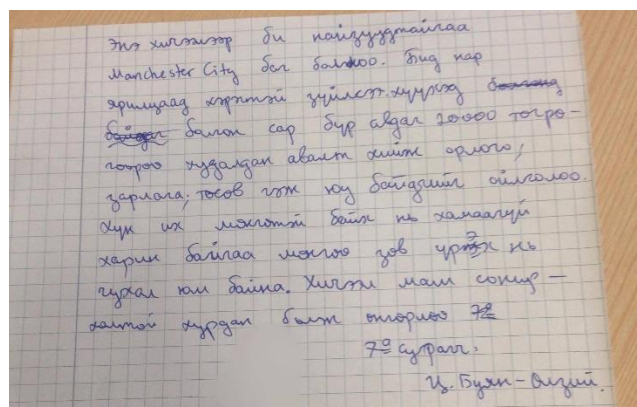 Энэ хичээлээр би найзуудтайгаа
Manchester City баг болжоо. Бид нар
ярилцаад хэрэгтэй зүйлсээ. хүүхэд
болгон сар бүр авдаг 20000 төгрө-
гөөрөө худалдан авалт хийж орлого,
зарлага, төсөв гэж юу байдгийг ойлголоо.
Хүн их мөнгөтэй байх нь хамаагүй
харин байгаа мөнгөө зөв үрэх нь
чухал юм байна. Хичээл маш сонир-
холтой хурдан болж өнгөрлөө
7а сурагч.
Ц. Буян-Өлзий.